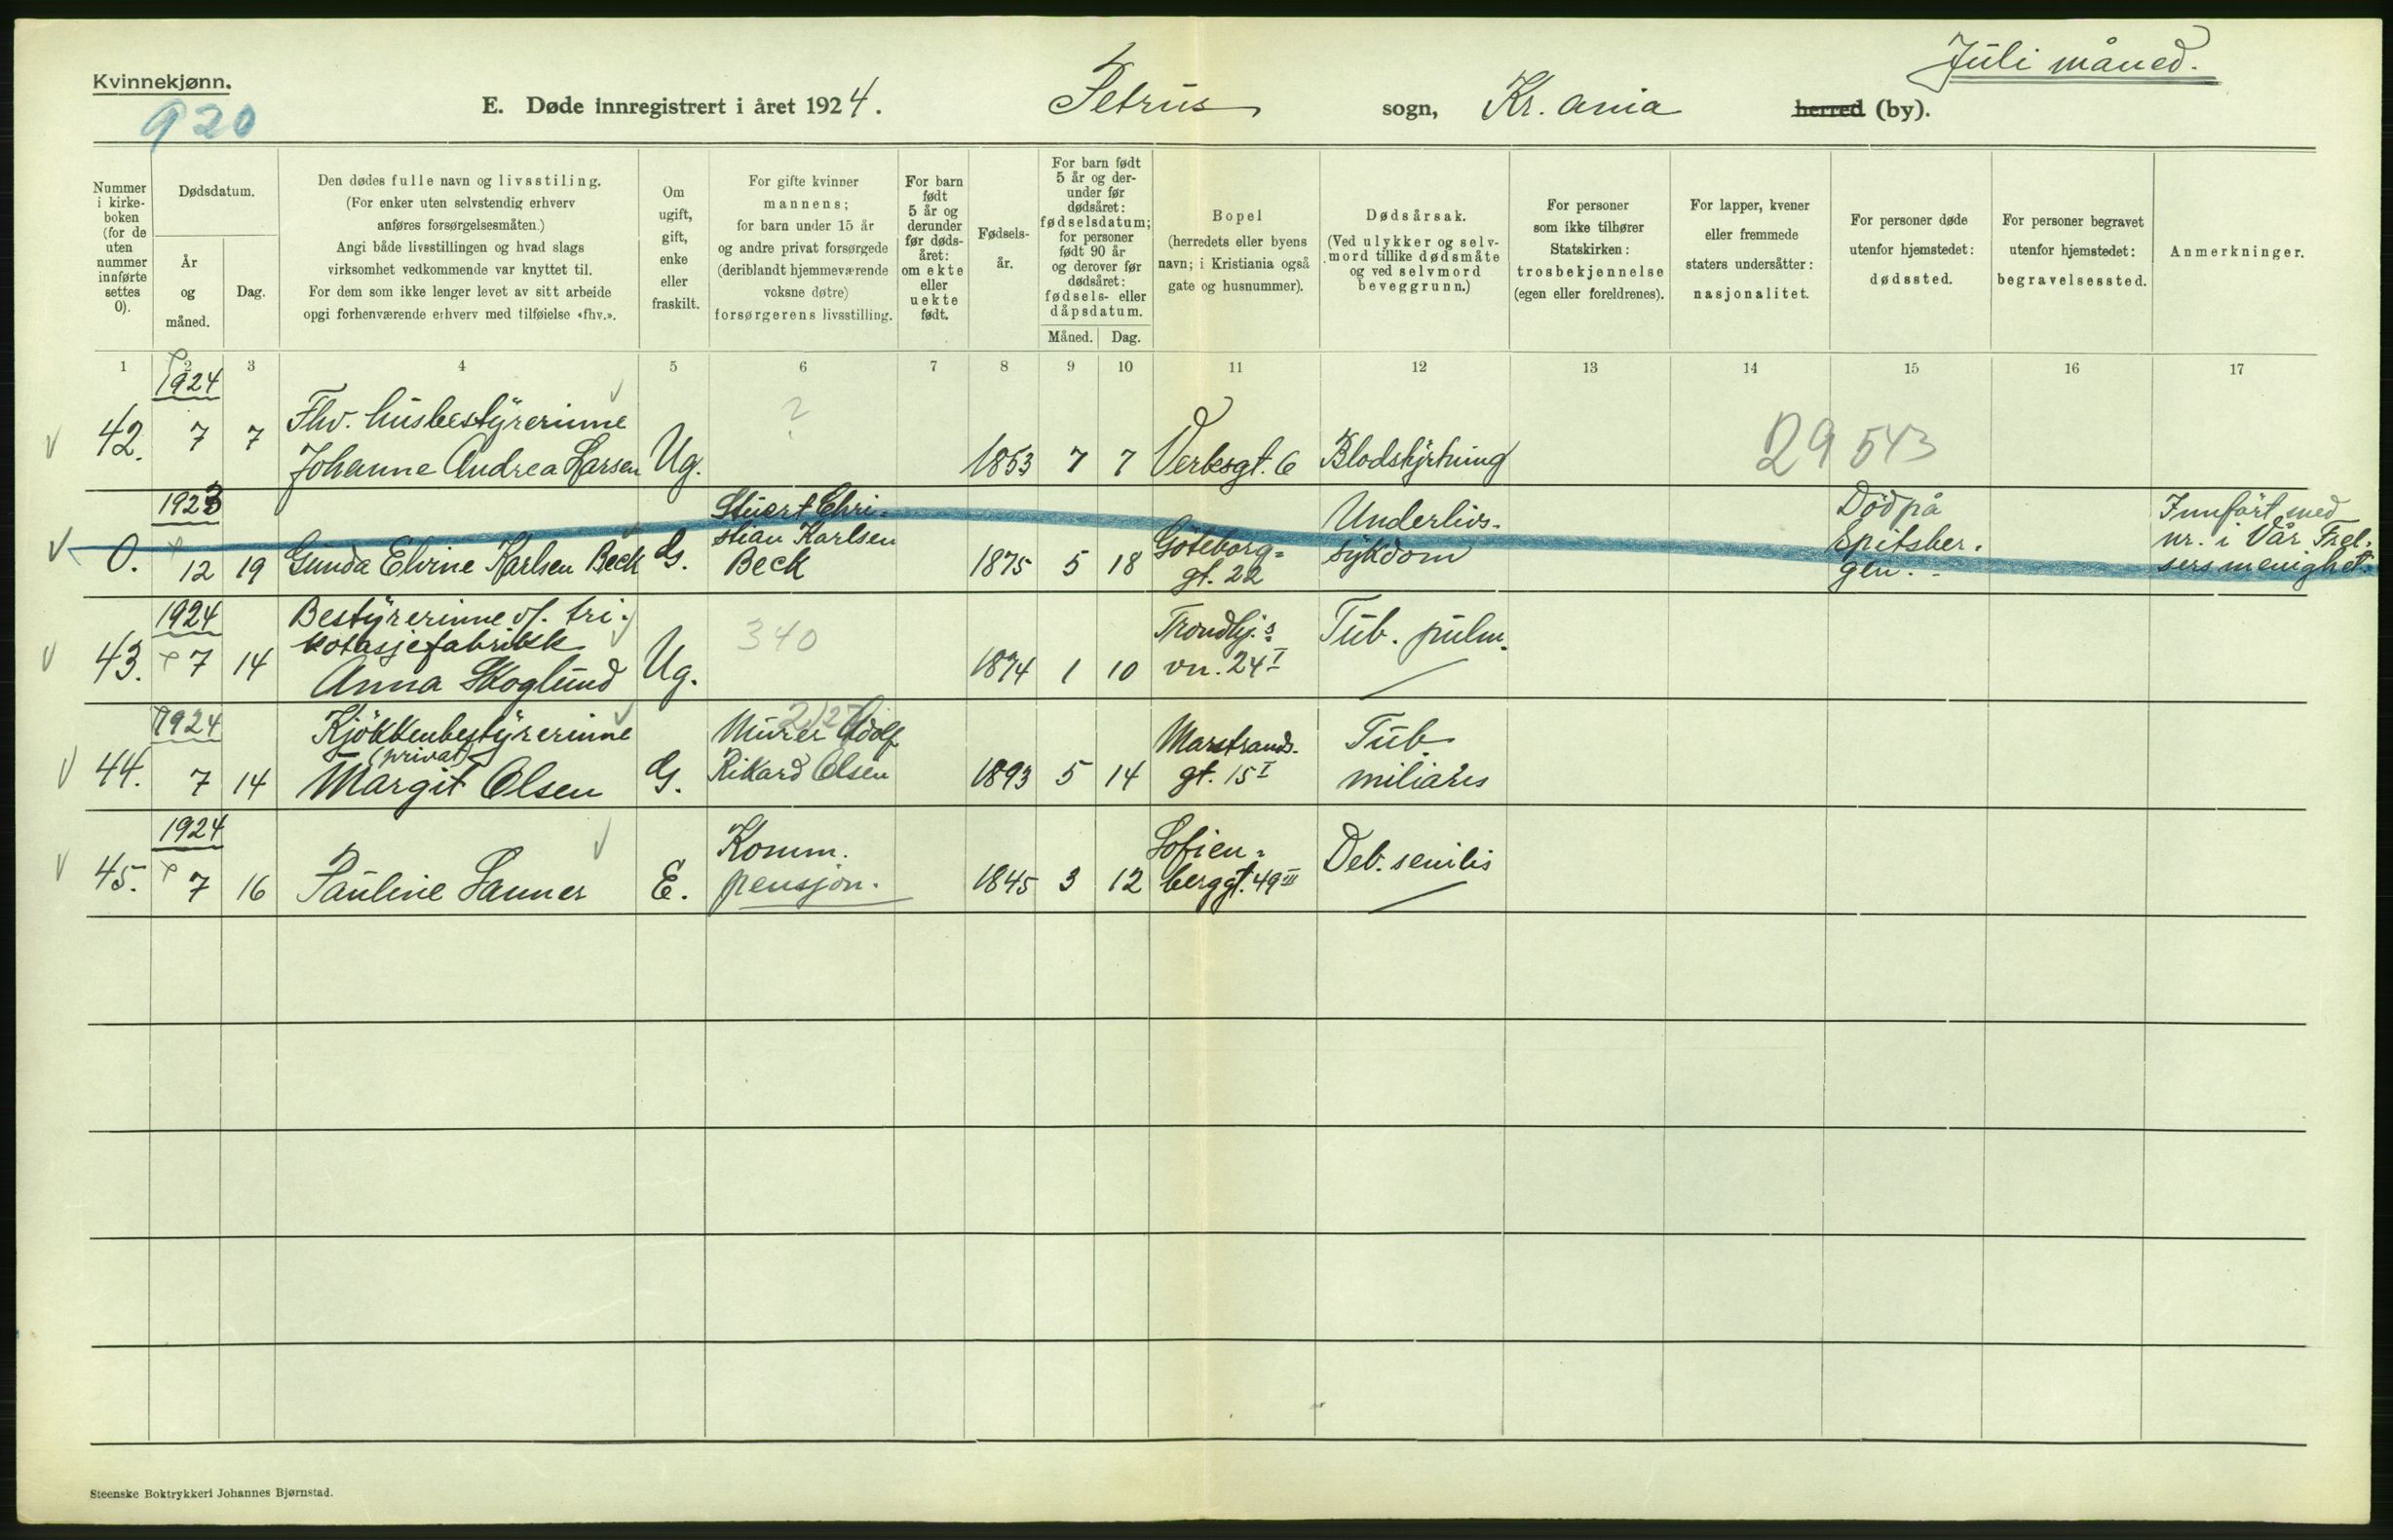 Juli måned.
Kvinnekjønn.
920
E. Døde innregistrert i året 1924. Petrus sogn, Kr. ania herred (by).
Nummer i kirke- boken (for de uten nummer innførte settes 0).
Dødsdatum.
År og måned.
Dag.
Den dødes fulle navn og livsstiling.
(For enker uten selvstendig erhverv
anføres forsørgelsesmåten.)
Angi både livsstillingen og hvad slags
virksomhet vedkommende var knyttet til.
For dem som ikke lenger levet av sitt arbeide
opgi forhenværende erhverv med tilføielse «fhv.».
Om
ugift,
gift,
enke
eller
fraskilt.
For gifte kvinner
mannens;
for barn under 15 år
og andre privat forsørgede
(deriblandt hjemmeværende
voksne døtre)
forsørgerens livsstilling.
For barn
født
5 år og
derunder
før døds-
året:
om ekte
eller
uekte
født.
Fødsels-
år.
For barn født
5 år og der-
under før
dødsåret:
fødselsdatum;
for personer
født 90 år
og derover før
dødsåret:
fødsels- eller
dåpsdatum.
Måned. Dag.
Bopel
(herredets eller byens
navn; i Kristiania også
gate og husnummer).
Dødsårsak.
(Ved ulykker og selv-
mord tillike dødsmåte
og ved selvmord
beveggrunn.)
For personer
som ikke tilhører
Statskirken:
trosbekjennelse
(egen eller foreldrenes).
For lapper, kvener
eller fremmede
staters undersåtter:
nasjonalitet.
For personer døde
utenfor hjemstedet:
dødssted.
For personer begravet
utenfor hjemstedet:
begravelsessted.
Anmerkninger.
1 2 3 4 5 6 7 8 9 10 11 12 13 14 15 16 17
1924
Fhv. husbestyrerinne ?
42. 7 7 Johanne Andrea Larsen Ug. 1853 7 7 Verksgt. 6 Blodstyrtning 29543
1923 Stuert Chri- Underlivs- Död på Innført med
stian Karlsen Göteborg- Spitsber- nr. i Vår Frel-
0. 12 19 Gunda Elvine Karlsen Beck G. Beck 1875 5 18 gt. 22 sykdom gen. sers menighet.
1924 Bestyrerinne v/. tri- Trondhj.s
kotasjefabrikk 340 Tub. pulm.
43. 7 14 Anna Skoglund Ug. 1874 1 10 vn. 24 I
1924 Kjökkenbestyrerinne Murer Adolf Marstrands- Tub.
(privat)
44. 7 14 Margit Olsen G. Rikard Olsen 1893 5 14 gt. 15 I miliaris
1924 Komm. Sofien- Deb. senilis
45. 7 16 Pauline Sanner E. pensjon. 1845 3 12 berggt. 49 III
Steenske Boktrykkeri Johannes Bjørnstad.